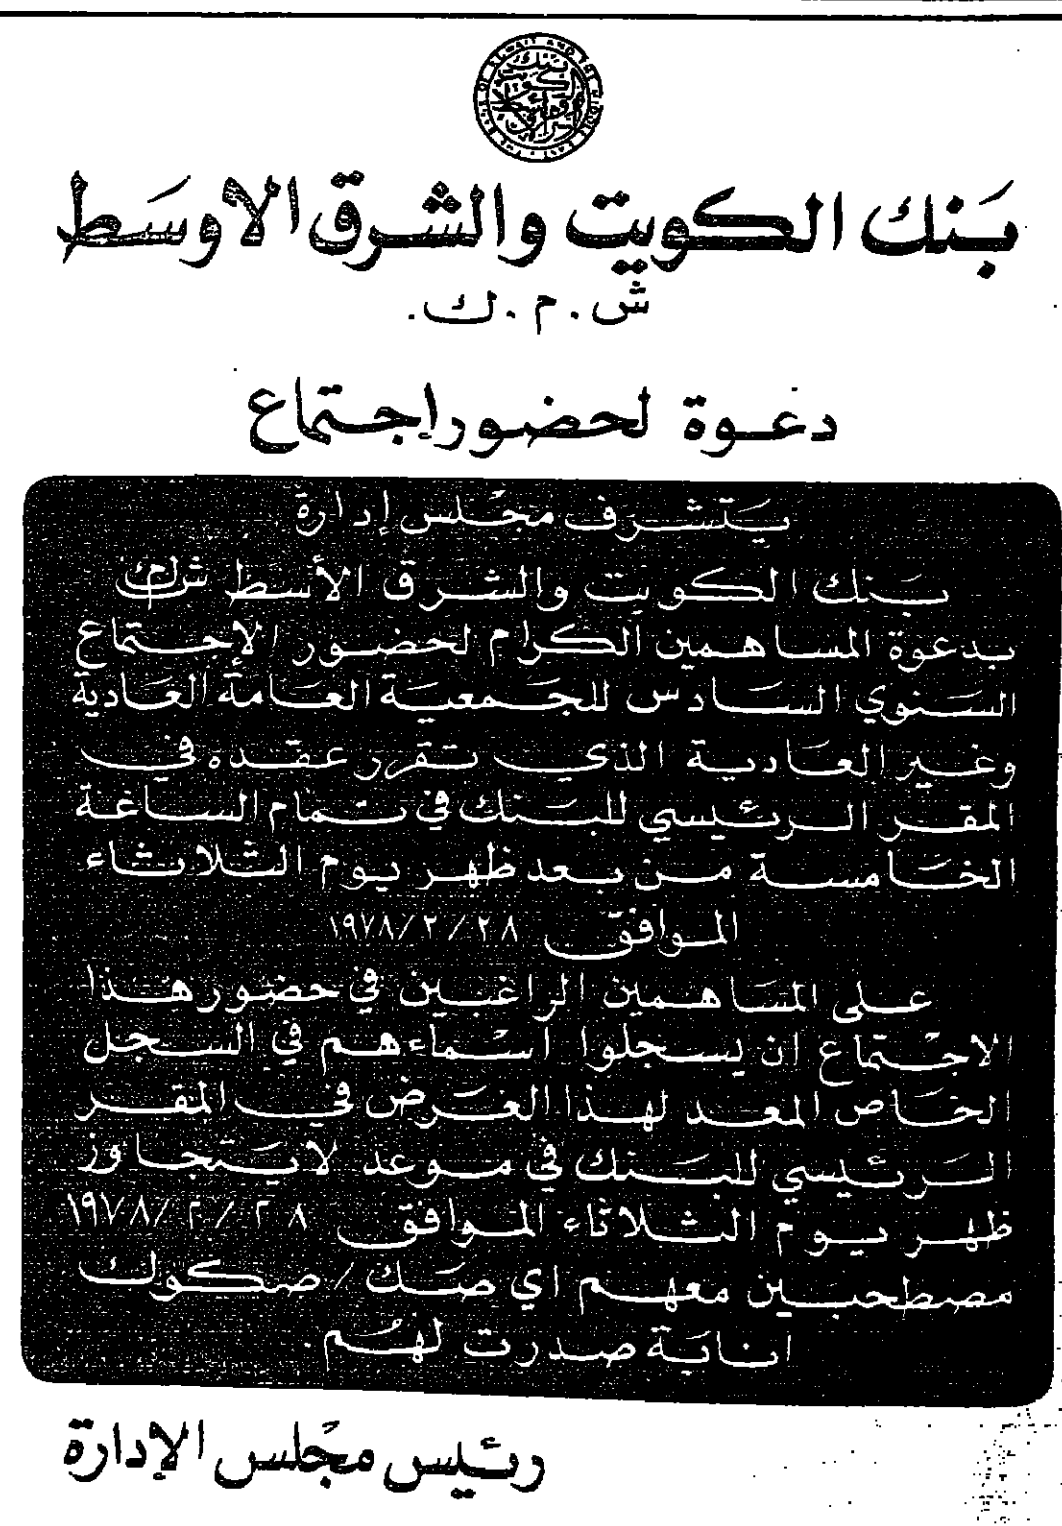 THE BANK OF KUWAIT AND THE MIDDLE EAST
بنك الكويت والشرق الاوسط
بَنك الكويت والشرق الاوسَط
ش . م . ك .
دعوة لحضور إجتماع
يتشرف مجلس إدارة
بَنك الكويت والشرق الأسط ش م ك
بدعوة المساهمين الكرام لحضور الإجتماع
السَنوي السَادس للجَمعية العَامة العَادية
وغير العَادية الذي تقرر عقده في
المقر الرئيسي للبَنك في تمام الساعة
الخَامسة من بعد ظهر يوم الثلاثاء
الموافق ١٩٧٨/٢/٢٨
على المسَاهمين الراغبين في حضور هذا
الاجتماع ان يسجلوا اسماءهم في السجل
الخَاص المعد لهذا الغَرض في المقر
الرئيسي للبَنك في موعد لا يتجاوز
ظهر يوم الثلاثاء الموافق ١٩٧٨/٢/٢٨
مصطحبين معهم اي صَك / صكوك
انابَة صدرت لهُم .
رئيس مجْلس الإدارة